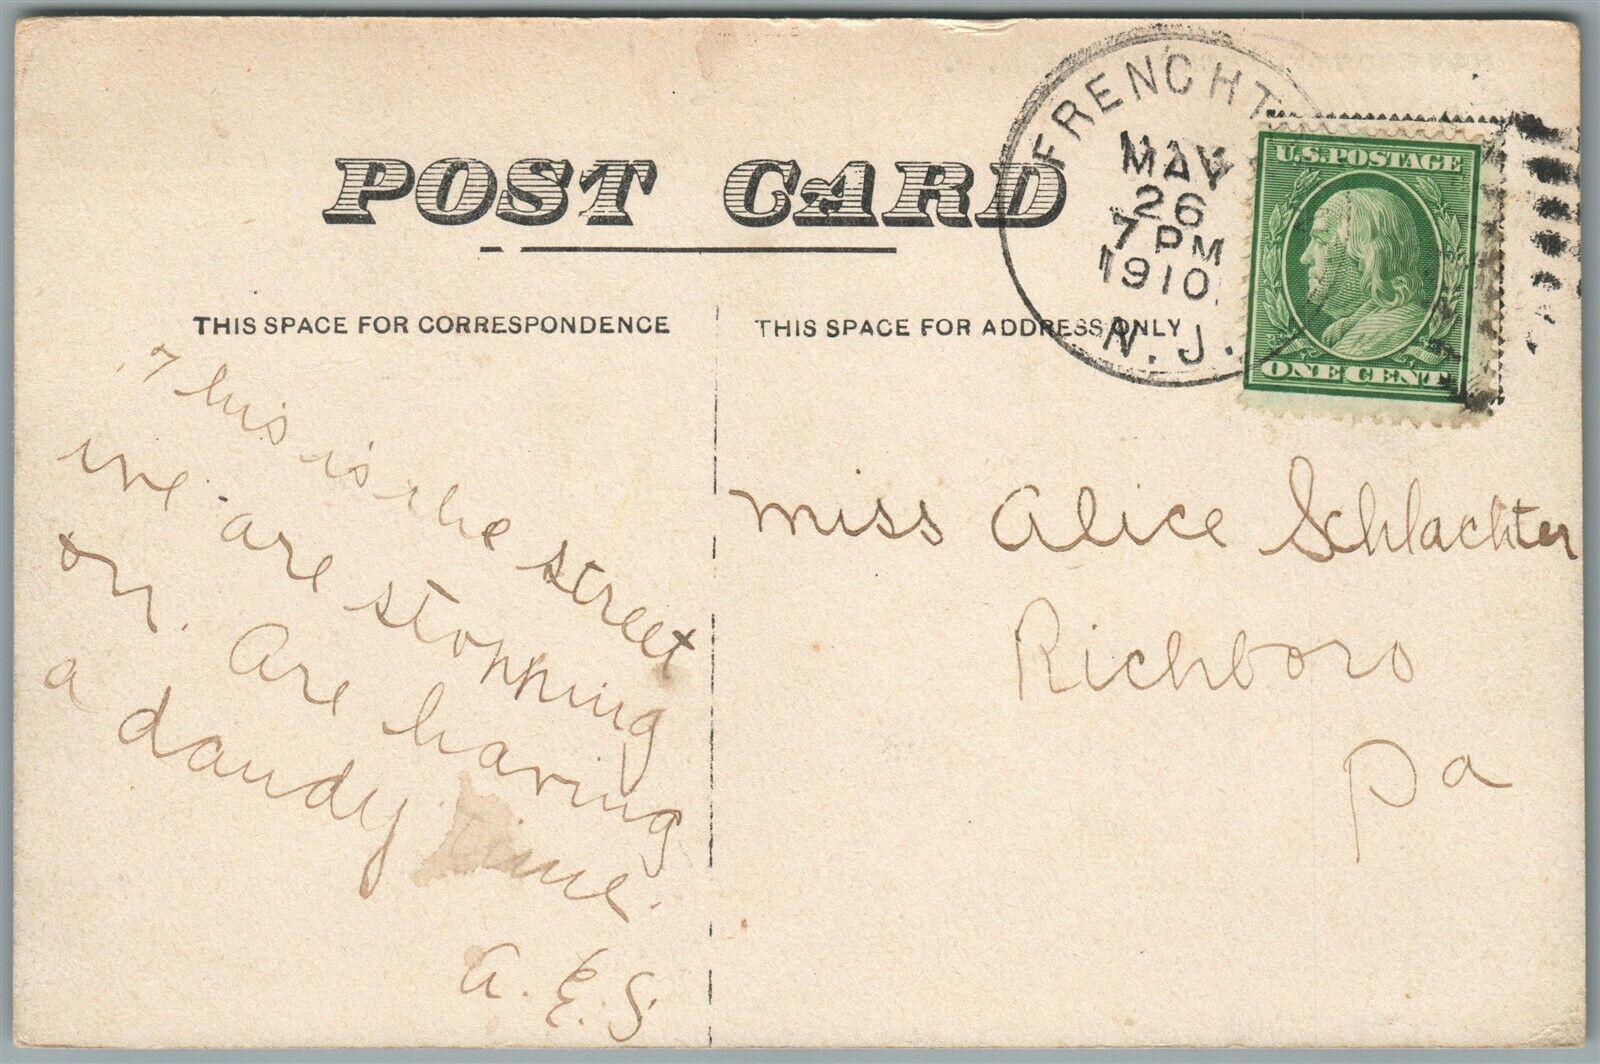 POST CARD
FRENCHT
MAY
26
7 PM
1910
N.J.
U.S. POSTAGE
ONE CENT
THIS SPACE FOR CORRESPONDENCE
THIS SPACE FOR ADDRESS ONLY
This is the street
we are stopping
on. Are having
a dandy time.
A. E. S.
Miss Alice Schlachter
Richboro
Pa